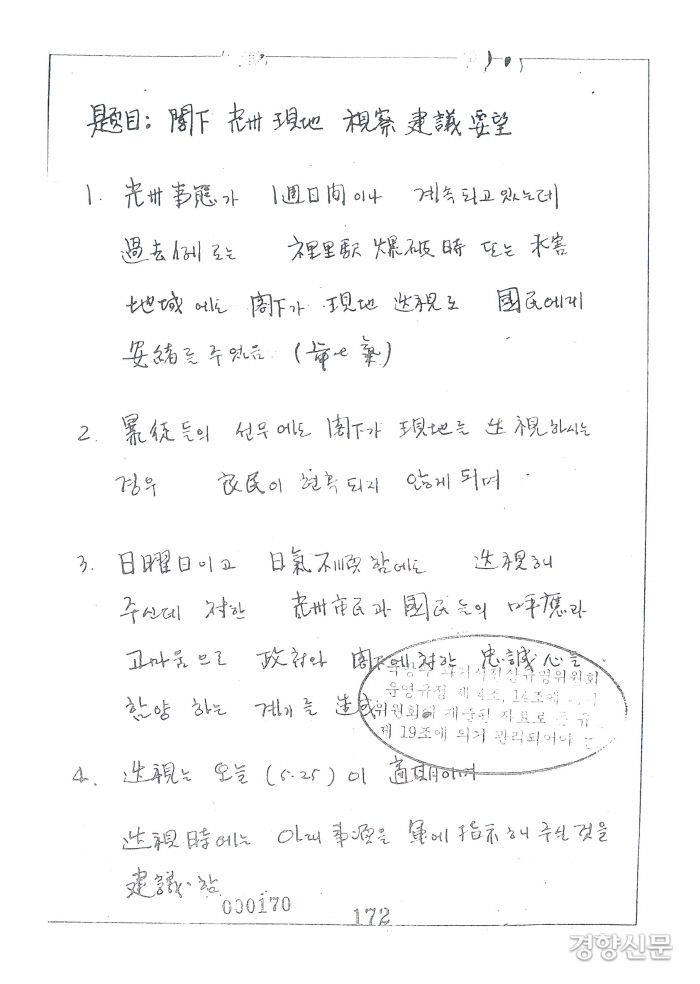 題目: 閣下 光州 現地 視察 建議 要望
1. 光州事態가 1週日間이나 계속되고 있는데
過去 例로는 裡里駅 爆破時 또는 水害
地域에도 閣下가 現地 巡視로 國民에게
安緒를 주었음
2. 暴徒들의 선무에도 閣下가 現地를 巡視하시는
경우 良民이 현혹되지 않게 되며
3. 日曜日이고 日氣不順함에도 巡視해
주신데 対한 光州市民과 國民들의 呼應과
고마움으로 政府와 閣下에 対한 忠誠心을
함양 하는 계기를 造成
과거사진상규명위원회
운영규정 제4조, 14조에
위원회에 제출된 자료로
제 19조에 의거 관리되어야
4. 巡視는 오늘 (5.25) 이 適期이며
巡視時에는 아래 事項을 軍에 指示해 주실 것을
建議함
000170
172
경향신문